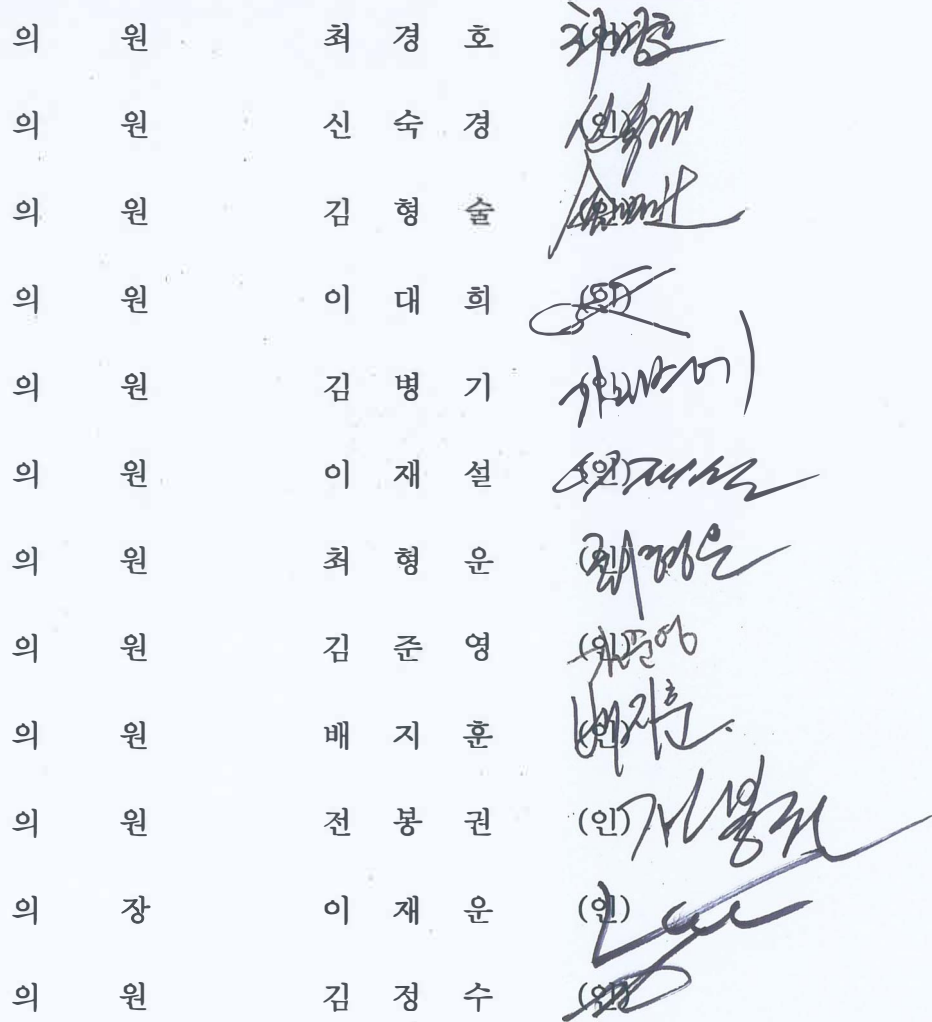 의 원 최 경 호 (인) 최경호
의 원 신 숙 경 (인)
의 원 김 형 술 (인)
의 원 이 대 희 (인)
의 원 김 병 기 (인)
의 원 이 재 설 (인) 재설
의 원 최 형 운 (인) 최형운
의 원 김 준 영 (인) 준영
의 원 배 지 훈 (인) 배지훈.
의 원 전 봉 권 (인) 전봉권
의 장 이 재 운 (인)
의 원 김 정 수 (인)